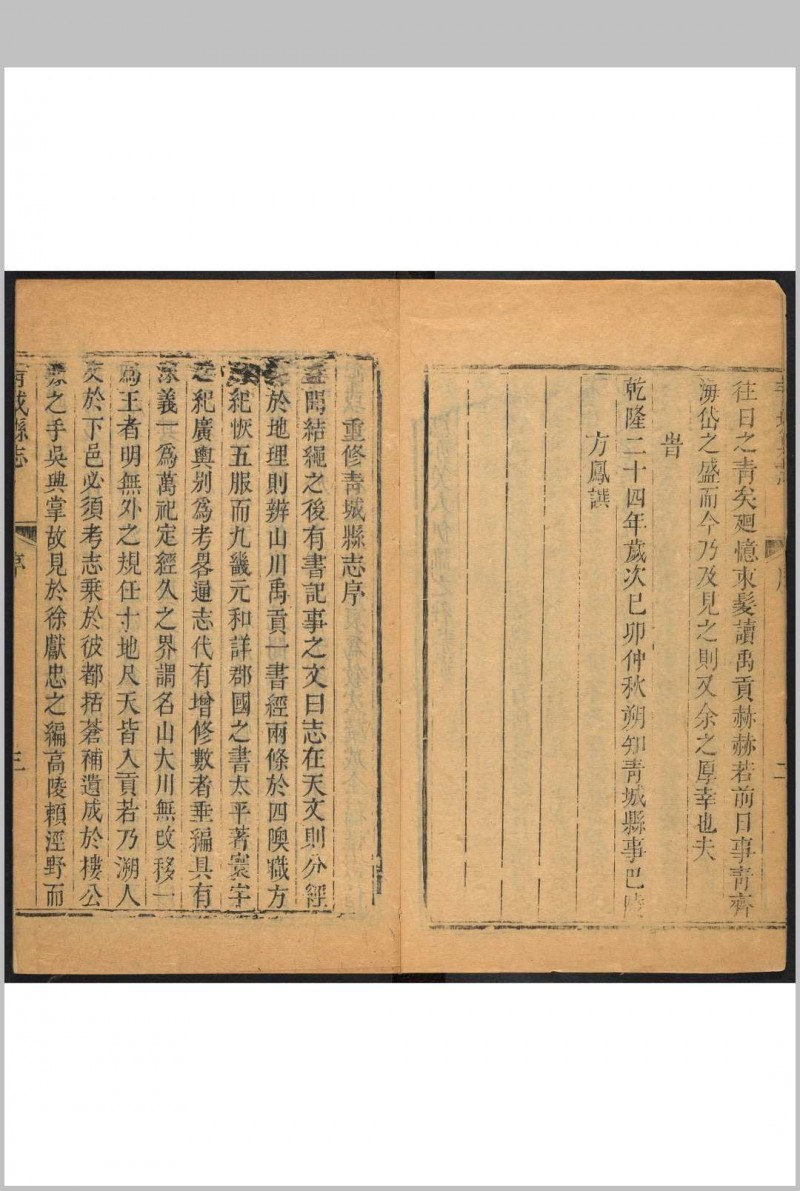 往日之青矣廻憶束髮讀禹貢赫赫若前日事青齊
海岱之盛而今乃及見之則又余之厚幸也夫
旹
乾隆二十四年歲次己卯仲秋朔知青城縣事巴陵
方鳳譔
序
二
重修青城縣志序
蓋聞結繩之後有書記事之文曰志在天文則分經
於地理則辨山川禹貢一書經兩條於四隩職方
紀恢五服而九畿元和詳郡國之書太平著寰宇
之紀廣輿别爲考畧通志代有增修數者垂編具有
深義一爲萬祀定經久之界謂名山大川無改移一
爲王者明無外之規任寸地尺天皆入貢若乃溯人
文於下邑必須考志乘於彼都括蒼補遺成於樓公
之手吳興掌故見於徐獻忠之編高陵賴涇野而
青城縣志
序
三